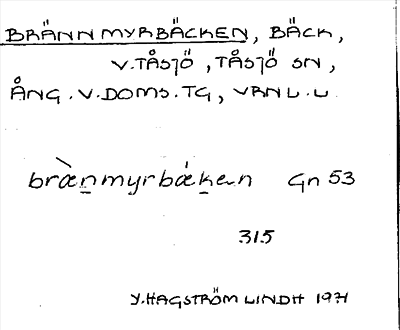 BRÄNNMYRBÄCKEN, BÄCK,
V.TÅSJÖ, TÅSJÖ SN,
ÅNG.V.DOMS.TG, VRNL.L
bræ̀n̲myrbák̲en Gn 53
315
Y.HAGSTRÖM LINDH 1971